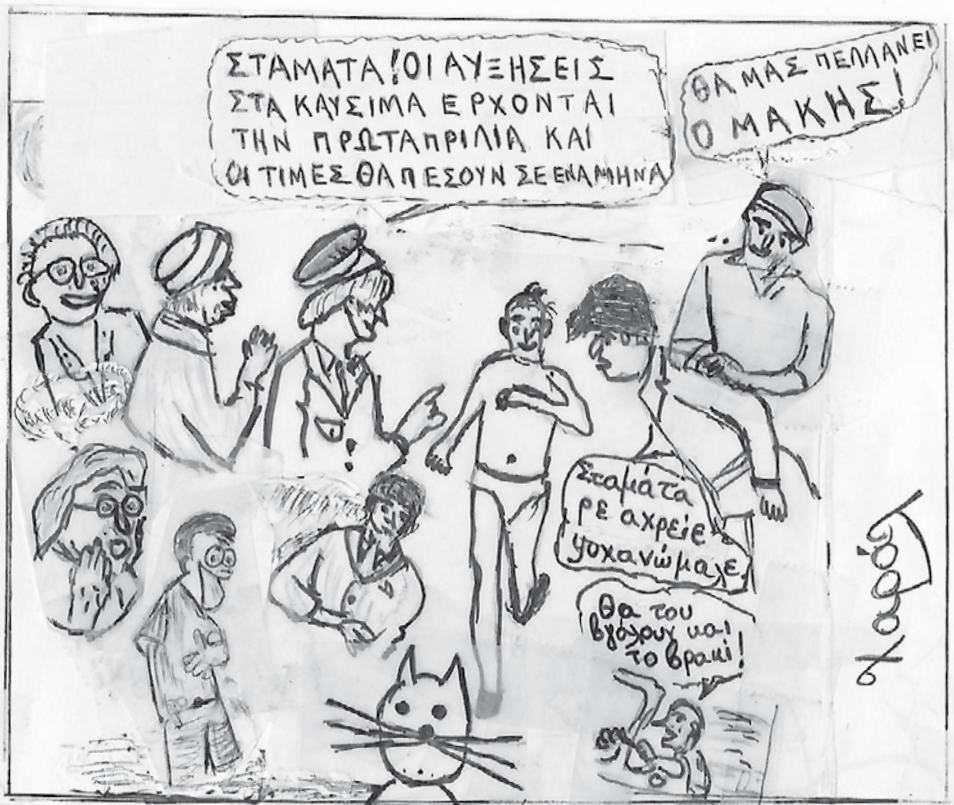 ΣΤΑΜΑΤΑ! ΟΙ ΑΥΞΗΣΕΙΣ
ΣΤΑ ΚΑΥΣΙΜΑ ΕΡΧΟΝΤΑΙ
ΤΗΝ ΠΡΩΤΑΠΡΙΛΙΑ ΚΑΙ
ΟΙ ΤΙΜΕΣ ΘΑ ΠΕΣΟΥΝ ΣΕ ΕΝΑ ΜΗΝΑ
ΘΑ ΜΑΣ ΠΕΛΛΑΝΕΙ
Ο ΜΑΚΗΣ!
Σταμάτα
ρε αχρείε
Θα του
βγάλουν και
το βρακί!